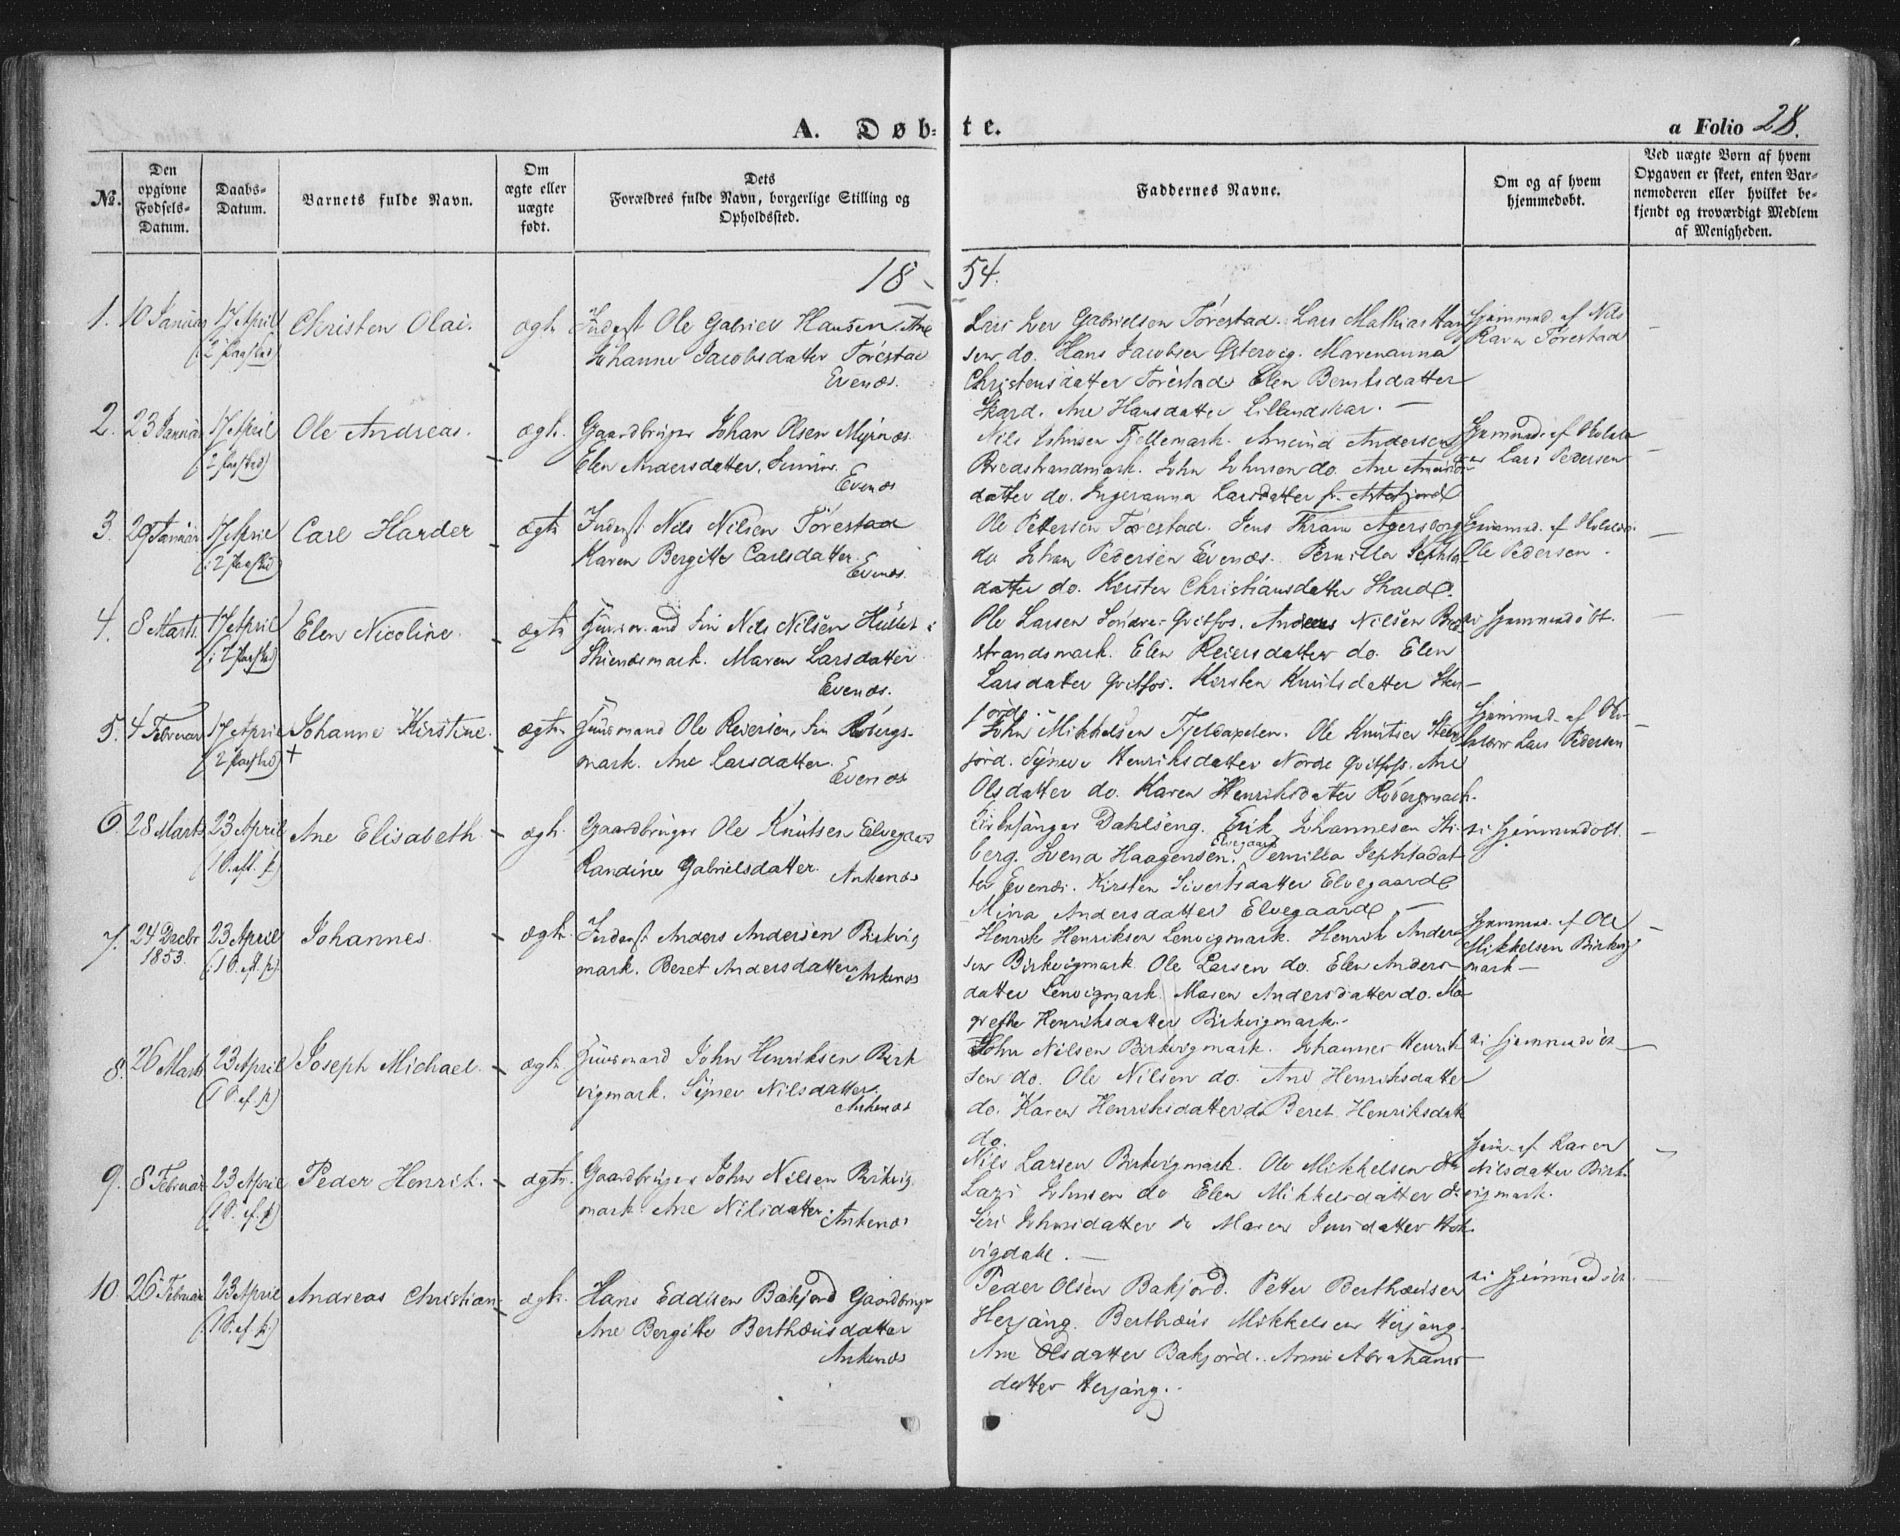 A. Døb- te.
a Folio 28.
№.
Den opgivne Fødsels-Datum.
Daabs-Datum.
Barnets fulde Navn.
Om ægte eller uægte født.
Dets Forældres fulde Navn, borgerlige Stilling og Opholdssted.
Faddernes Navne.
Om og af hvem hjemmedøbt.
Ved uægte Børn af hvem Opgaven er skeet, enten Barnemoderen eller hvilket bekjendt og troværdigt Medlem af Menigheden.
18 54.
1. 10 Januar 17 April Christen Olai. ægte Inderst Ole Gabriel Hansen Ane
Johanne Jacobsdatter Tørestad
Evenæs.
Lars Iver Gabrielsen Tørestad. Lars Mathias Han
sen do. Hans Jacobsen Østervig. Marenanna
Christensdatter Tørestad. Elen Berntsdatter
Skard. Ane Hansdatter Lillandskar.
Hjemmed. af Nils
Tørestad
2. 23 Januar 17 April Ole Andreas. ægte. Gaardbruger Johan Olsen
Elen Andersdatter.
Evenæs
Nils Johnsen Fjellemark. Amund Andersen
Bredstrandmark. John Johnsen do. Ane
datter do. Ingeranna Larsdatter
Hjemmed. af
Lars Pedersen
3. 29 Januar 17 April Carl Harder ægte Inderst Nils Nilsen Tørestad
Karen Bergitte Carlsdatter.
Evenæs.
Ole Pettersen Tørestad. Jens Thrane Agersborg
do Johan Pedersen Evenæs. Pernilla Jephta
datter do. Kirsten Christiansdatter Skard.
Hjemmed. af
Ole Pedersen.
4. 8 Marts 17 April Elen Nicoline. ægte Huusmand Fin Nils Nilsen
Skienæsmark. Maren Larsdatter
Evenæs.
Ole Larsen Søndre Qvitfos. Anders Nilsen Bred
strandsmark. Elen Reiersdatter do. Elen
Larsdatter Qvitfos. Kirsten Knutsdatter Sten
fjord.
ei hjemmedøbt.
5. 4 Februar 17 April Johanne Kirstine. ægte Huusmand Ole Reiersen, Fin
mark. Ane Larsdatter.
Evenæs
John Mikkelsen Fjeldaxelen. Ole Knutsen Sten
fjord. Synev Henriksdatter Nordre Qvitfos. Ane
Olsdatter do. Karen Henriksdatter
Hjemmed. af
Lars Pedersen
6. 28 Marts 23 April Ane Elisabeth ægte. Gaardbruger Ole Knutsen Elvegaard
Randine Gabrielsdatter.
Ankenæs
Dahlseng. Erik Johannesen
berg. Svend Haagensen Elvegaard. Pernilla Jephtadat
ter Evenæs. Kirsten Sivertsdatter Elvegaard
Mina Andersdatter Elvegaard
ei hjemmedøbt.
7. 24 Decbr 1853. 23 April Johannes ægte. Inderst Anders Andersen Birkvig
mark. Beret Andersdatter
Ankenæs
Henrik Henriksen Lenvigmark. Henrik Ander
sen Birkvigmark Ole Larsen do. Elen Anders
datter Lenvigmark. Maren Andersdatter do. Ma
grethe Henriksdatter Birkvigmark.
Hjemmed. af Ole
Mikkelsen Birkvig
mark
8. 26 Marts 23 April Joseph Michael. ægte Huusmand John Henriksen Birk
vigmark. Synev Nilsdatter.
Ankenæs
John Nilsen Birkvigmark. Johannes Henrik
sen do. Ole Nilsen do. Ane Henriksdatter
do. Karen Henriksdatter do Beret Henriksdatt
do.
ei hjemmedøbt
9. 8 Februar 23 April Peder Henrik. ægte. Gaardbruger John Nilsen Birkvig
mark Ane Nilsdatter.
Ankenæs
Nils Larsen Birkvigmark. Ole Mikkelsen do
Lars Johnsen do Elen Mikkelsdatter do
Siri Johnsdatter do Maren Jensdatter
vigdahl.
Hjem. af Karen
Nilsdatter Birk
vigmark.
10. 26 Februar 23 April Andreas Christian ægte. Hans Eddisen Bakjord Gaardbruger
Ane Bergitte Berthæusdatter
Ankenæs
Peder Olsen Bakjord. Petter Berthæusen
Herjang. Berthæus Mikkelsen Herjang.
Ane Olsdatter Bakjord. Anne Abrahams
datter Herjang.
ei hjemmedøbt.